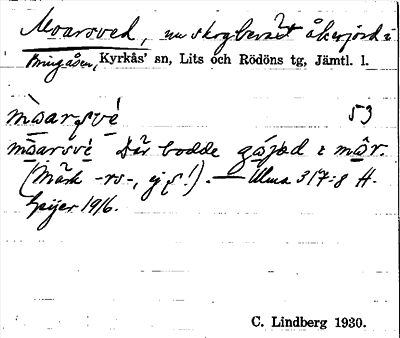 Moarsved, nu skogbevext åkerjord i
Bringåsen, Kyrkås' sn, Lits och Rödöns tg, Jämtl. l.
mòarʂvé 53
mòarsvè Där bodde i mår.
(Märk -rs-, ej ʂ!). — Ulma 317:8 H.
Geijer 1916.
C. Lindberg 1930.